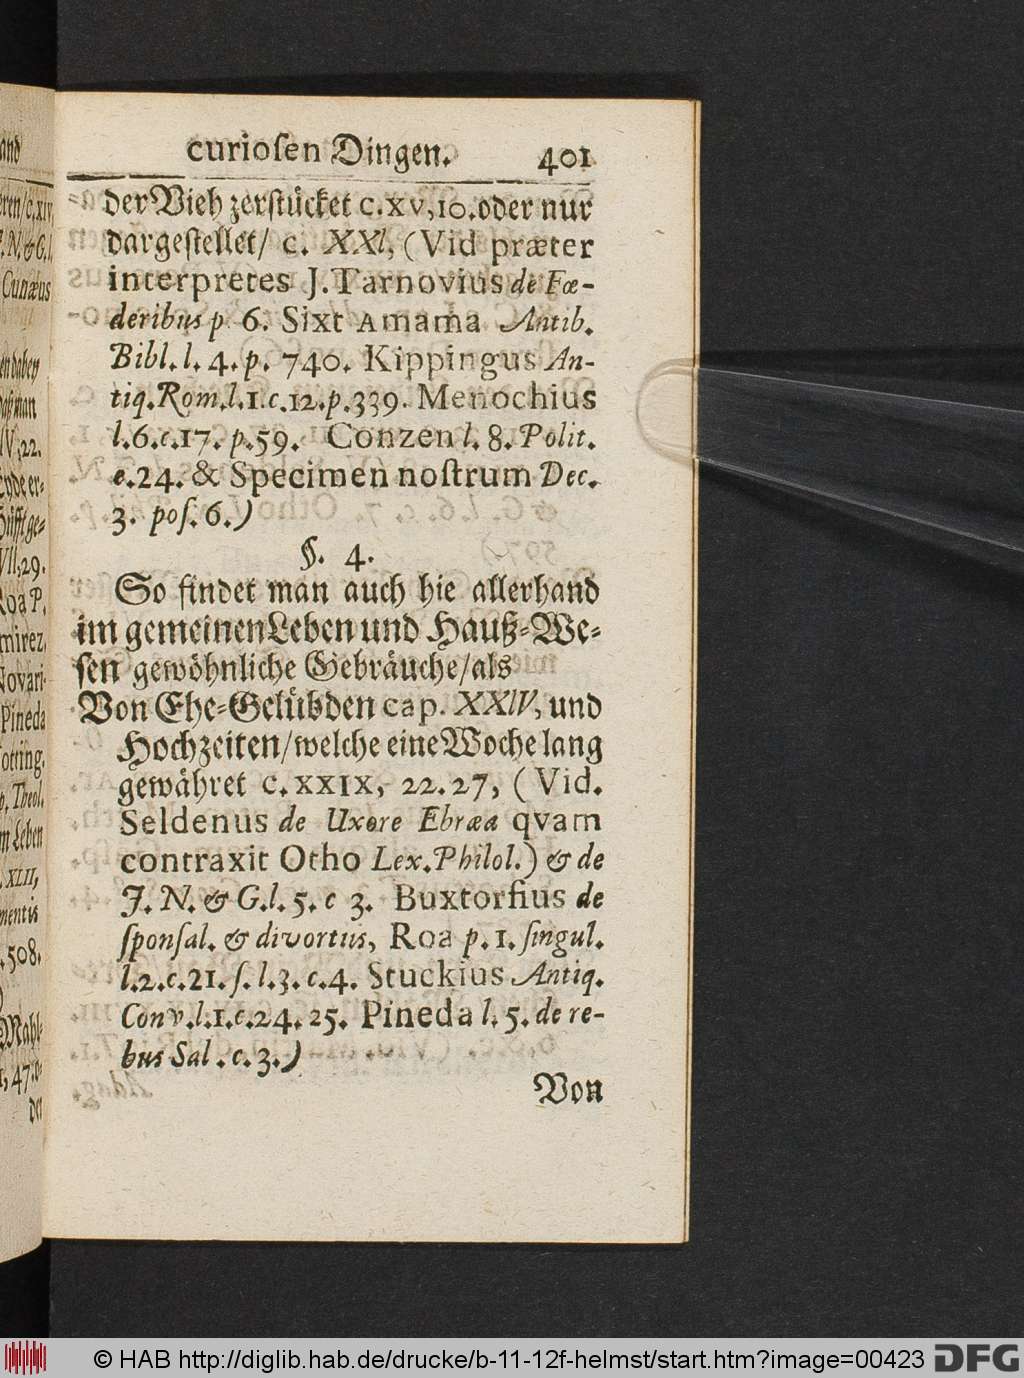 curiosen Dingen. 401
der Vieh zerstücket c. xv, 10. oder nur
dargestellet/ c. XXI, (Vid præter
interpretes J. Tarnovius de Fœ-
deribus p 6. Sixt Amama Antib.
Bibl. l. 4. p. 740. Kippingus An-
tiq. Rom. l. 1. c. 12. p. 339. Menochius
l. 6. c. 17. p. 59. Conzen l. 8. Polit.
c. 24. & Specimen nostrum Dec.
3. pos. 6.)
§. 4.
So findet man auch hie allerhand
im gemeinen Leben und Hauß-We-
sen gewöhnliche Gebräuche/als
Von Ehe-Gelübden cap. XXIV, und
Hochzeiten/welche eine Woche lang
gewähret c. XXIX, 22. 27, (Vid.
Seldenus de Uxore Ebræa qvam
contraxit Otho Lex. Philol.) & de
J. N. & G. l. 5. c 3. Buxtorfius de
sponsal. & divortiis, Roa p. 1. singul.
l. 2. c. 21. s. l. 3. c. 4. Stuckius Antiq.
Conv. l. 1. c. 24. 25. Pineda l. 5. de re-
bus Sal. c. 3.)
Von
© HAB http://diglib.hab.de/drucke/b-11-12f-helmst/start.htm?image=00423 DFG